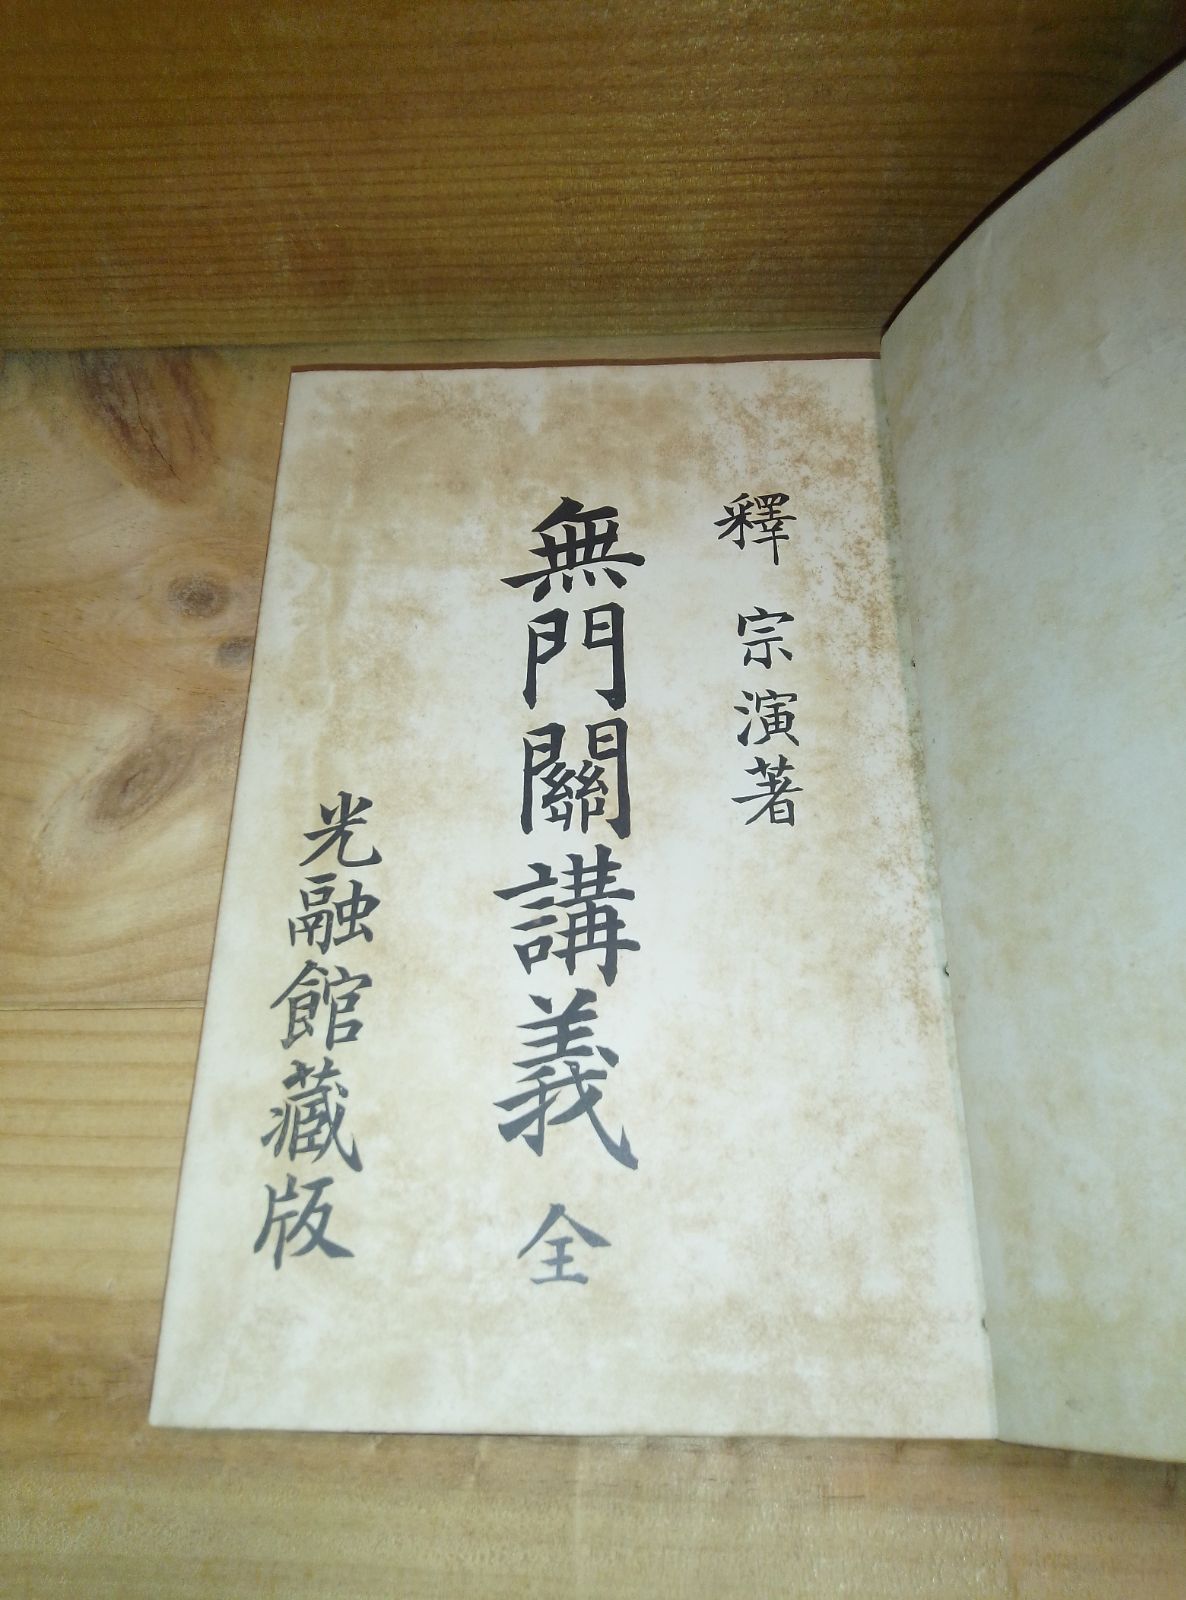 釋宗演著
無門關講義 全
光融館藏版